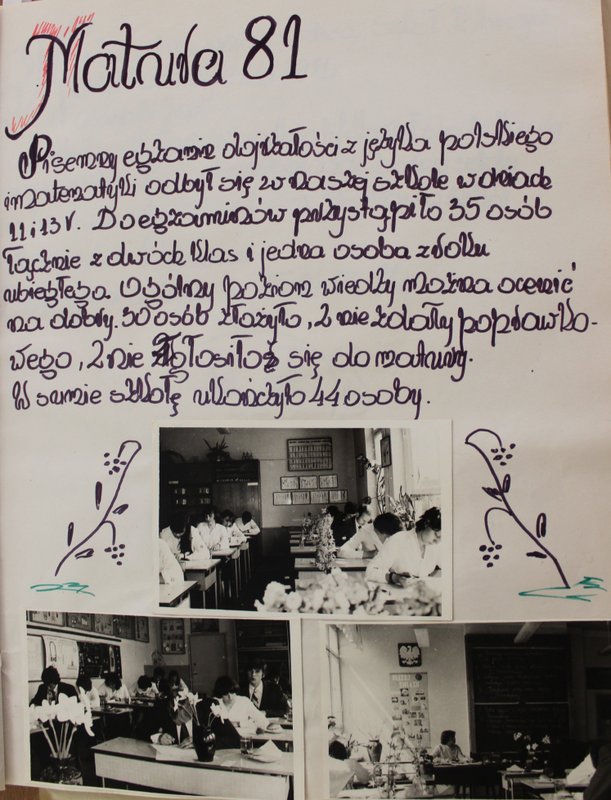 Matura 81
Pisemny egzamin dojrzałości z języka polskiego
i matematyki odbył się w naszej szkole w dniach
11 i 13 V. Do egzaminów przystąpiło 35 osób
łącznie z dwóch klas i jedna osoba z roku
ubiegłego. Ogólny poziom wiedzy można ocenić
na dobry. 30 osób złożyło, 2 nie zdały poprawko-
wego, 2 nie zgłosiło się do matury.
W sumie szkołę ukończyło 44 osoby.